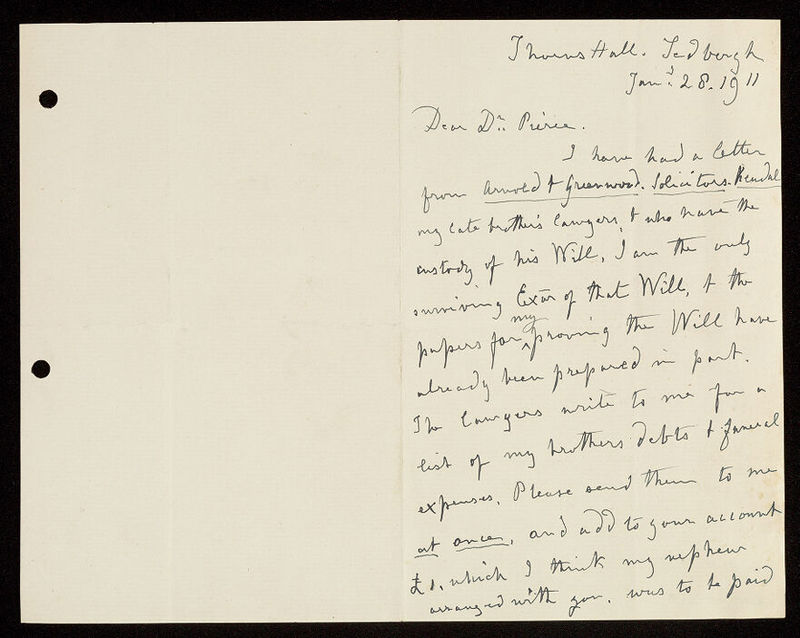 Thorns Hall. Sedbergh
Jany. 28. 1911
Dear Dr. Pierce.
I have had a letter
from Arnold & Greenwood. Solicitors. Kendal
my late brother's lawyers, & who have the
custody of his Will, I am the only
surviving Exor of that Will, & the
papers for my proving the Will have
already been prepared in part.
The lawyers write to me for a
list of my brothers debts & funeral
expenses. Please send them to me
at once, and add to your account
£1. which I think my nephew
arranged with you. was to be paid